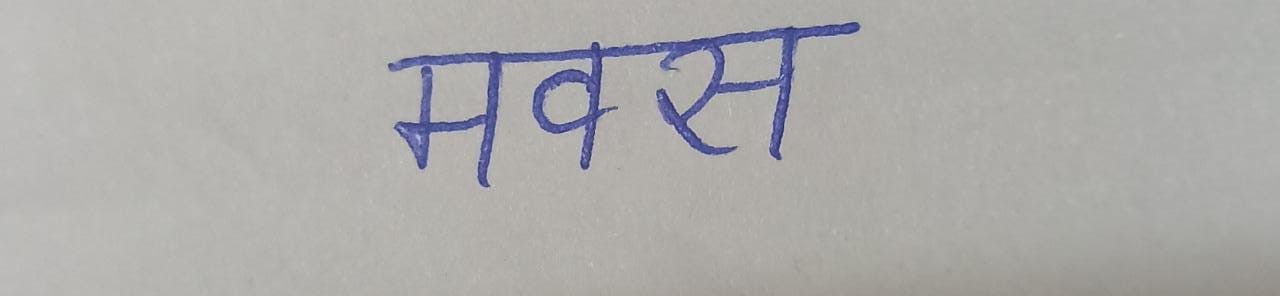 मवस